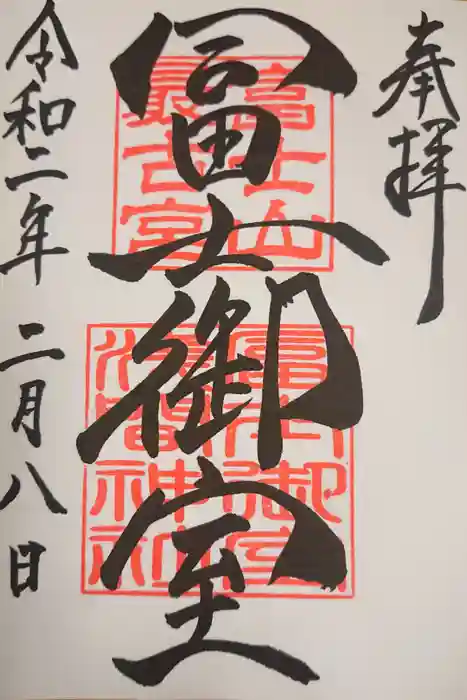 奉拝
冨士御室
富士山
最古宮
冨士御室
浅間神社
令和二年 二月八日